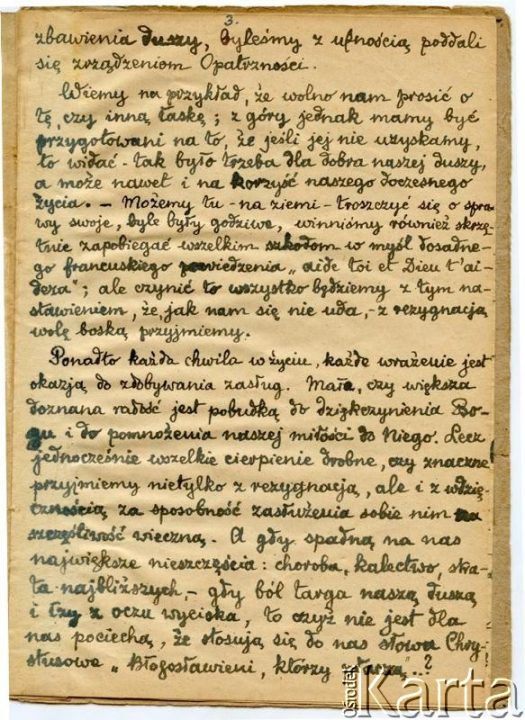 3.
zbawienia duszy, byleśmy z ufnością poddali
się zrządzeniom Opatrzności.
Wiemy na przykład, że wolno nam prosić o
tę, czy inną łaskę; z góry jednak mamy być
przygotowani na to, że jeśli jej nie uzyskamy,
to widać - tak było trzeba dla dobra naszej duszy,
a może nawet i na korzyść naszego doczesnego
życia. - Możemy tu - na ziemi - troszczyć się o spra-
wy swoje, byle były godziwe, winniśmy również skrzę-
tnie zapobiegać wszelkim szkodom w myśl dosadne-
go francuskiego powiedzenia „aide toi et Dieu t'ai-
dera"; ale czynić to wszystko będziemy z tym na-
stawieniem, że, jak nam się nie uda, - z rezygnacją
wolę boską przyjmiemy.
Ponadto każda chwila w życiu, każde wrażenie jest
okazją do zdobywania zasług. Mała, czy większa
doznana radość jest pobudką do dziękczynienia Bo-
gu i do pomnożenia naszej miłości do Niego. Lecz
jednocześnie wszelkie cierpienie drobne, czy znaczne
przyjmiemy nietylko z rezygnacją, ale i z wdzię-
cznością za sposobność zasłużenia sobie nim na
szczęśliwość wieczną. A gdy spadną na nas
największe nieszczęścia: choroba, kalectwo, ska-
ta najbliższych, - gdy ból targa naszą duszą
i łzy z oczu wyciska, to czyż nie jest dla
nas pociechą, że stosują się do nas słowa Chry-
stusowe „Błogosławieni, którzy płaczą"..?
ośrodek
Karta